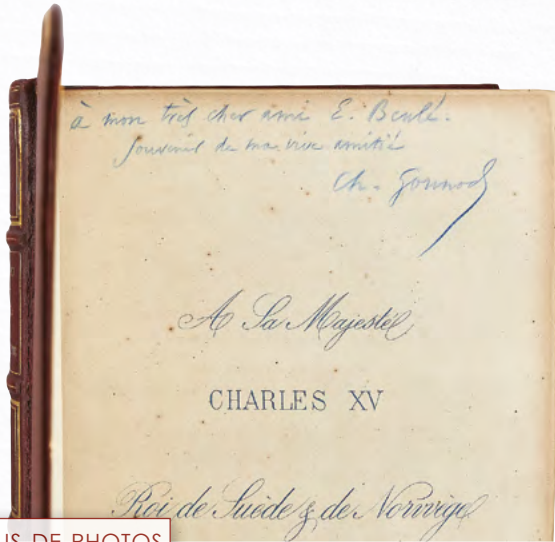 à mon très cher ami E. Beulé.
Souvenir de ma vive amitié
Ch. Gounod
A Sa Majesté
CHARLES XV
Roi de Suède & de Norwège
US DE PHOTOS